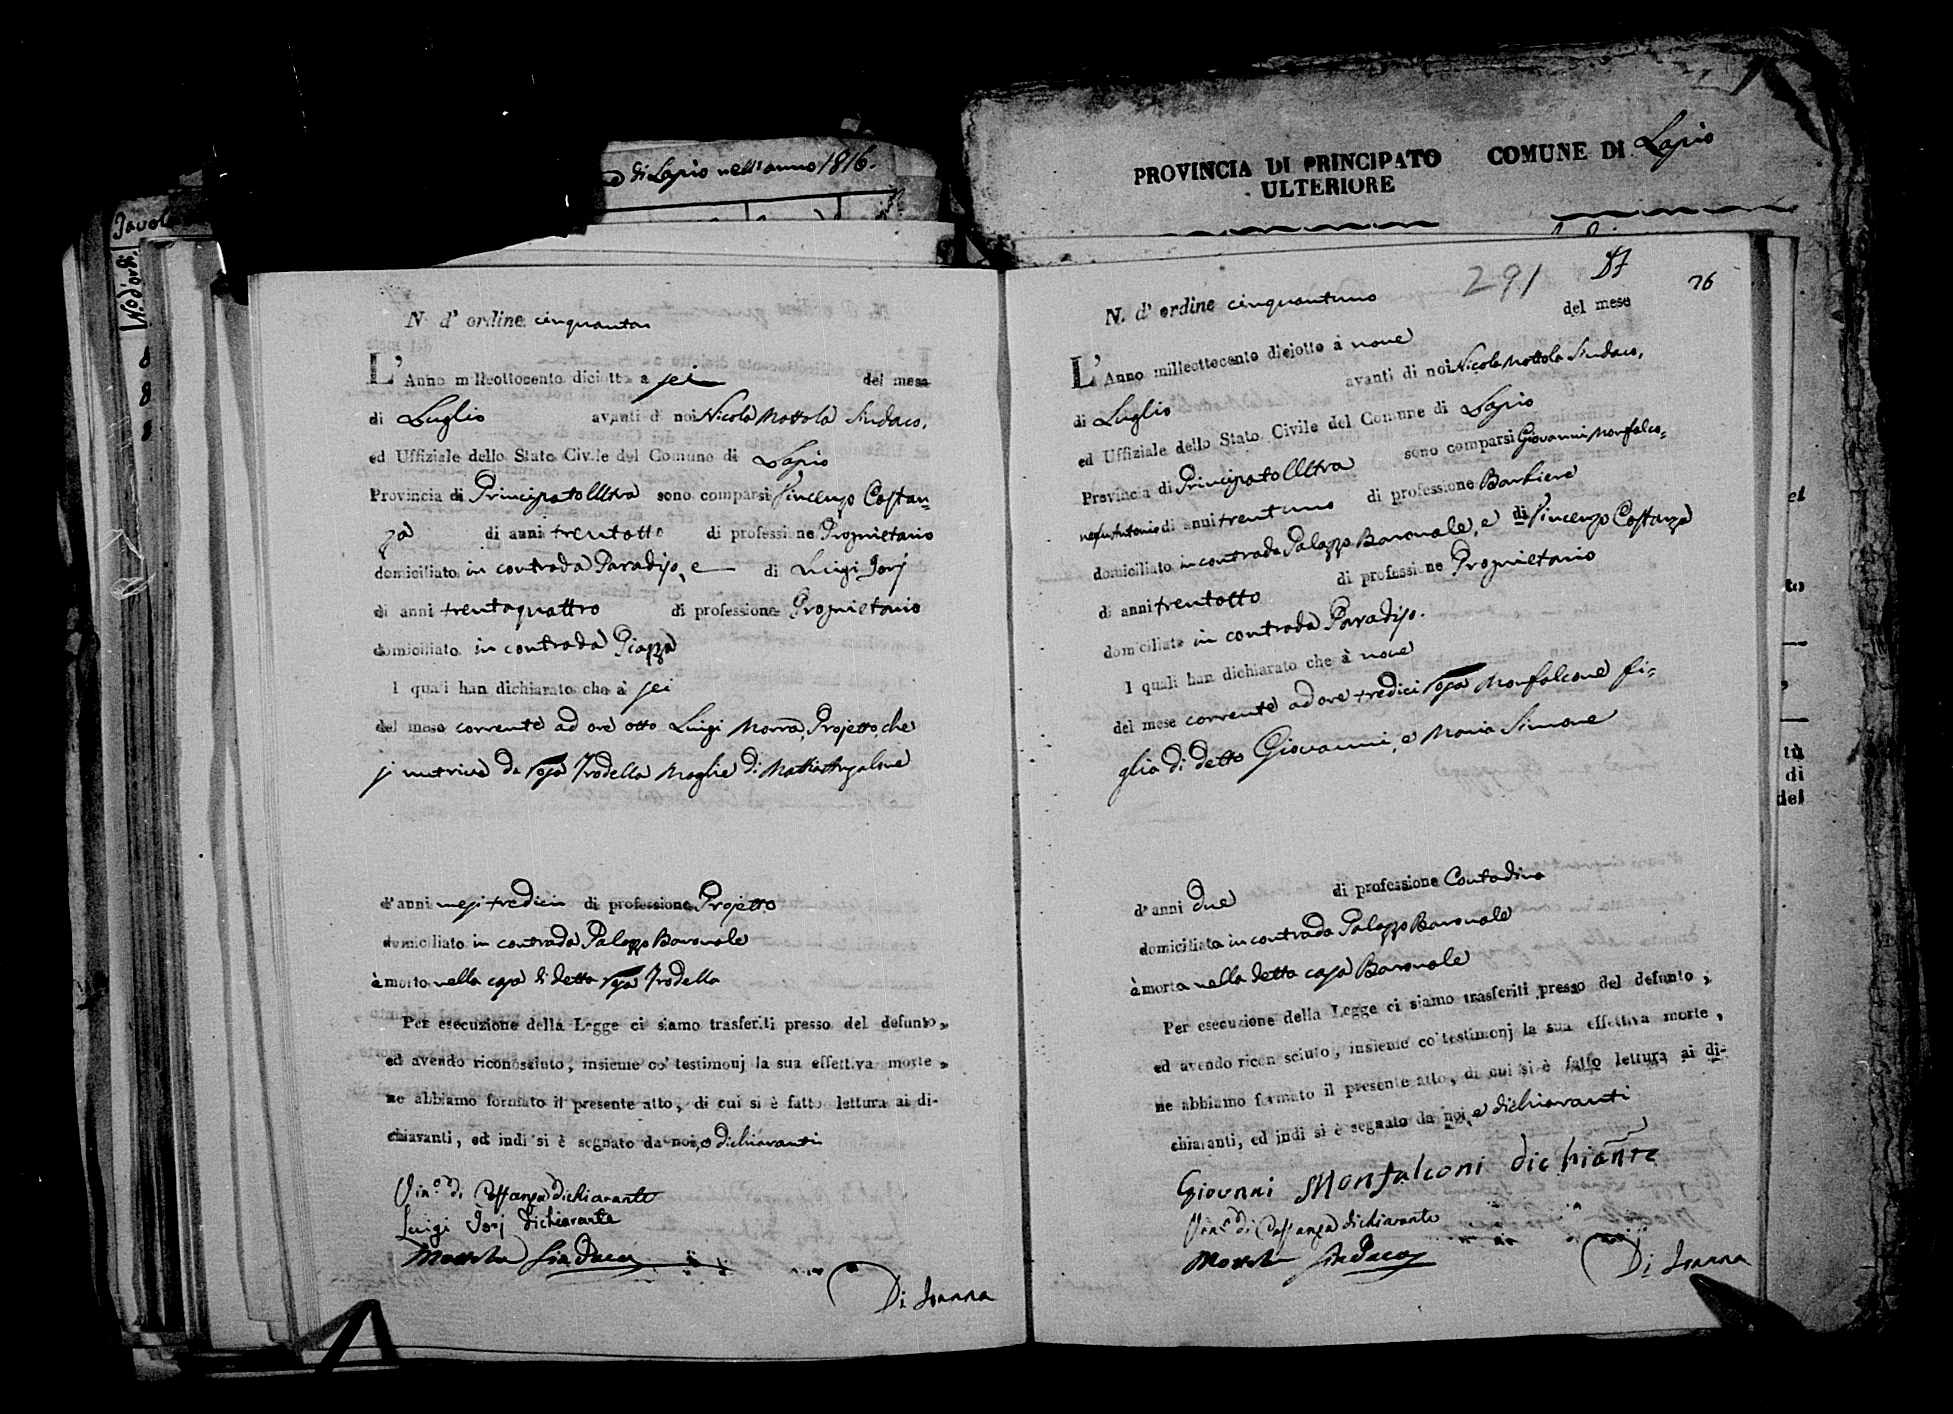 di Lapio nell'anno 1816.
PROVINCIA DI PRINCIPATO
ULTERIORE
COMUNE DI Lapio
N.º d'ordi.
N. d' ordine cinquanta
L'Anno milleottocento diciotto a sei del mese
di Luglio avanti di noi Nicola Mottola Sindaco,
ed Uffiziale dello Stato Civile del Comune di Lapio
Provincia di Principato Ultra sono comparsi Vincenzo Costan=
za di anni trentotto di professione Proprietario
domiciliato in contrada Paradiso, e di Luigi Jorj
di anni trentaquattro di professione Proprietario
domiciliato in contrada Piazza
I quali han dichiarato che à sei
del mese corrente ad ore otto Luigi Morra, Projetto che
si nutriva da Rosa Trodella Moglie di Mattia
d'anni mesi tredici di professione Projetto
domiciliato in contrada Palazzo Baronale
è morto nella casa di detta Rosa Trodella
Per esecuzione della Legge ci siamo trasferiti presso del defunto,
ed avendo riconosciuto, insieme co' testimonj la sua effettiva morte,
ne abbiamo formato il presente atto, di cui si è fatto lettura ai di-
chiaranti, ed indi si è segnato da noi, e dichiaranti
Vin.º di Costanza dichiarante
Luigi Jorj dichiarante
Mottola Sindaco
Di Joanna
291
76
N. d' ordine cinquantuno
del mese
L'Anno milleottocento diciotto à nove
di Luglio avanti di noi Nicola Mottola Sindaco,
ed Uffiziale dello Stato Civile del Comune di Lapio
Provincia di Principato Ultra sono comparsi Giovanni Monfalco=
ne fu Antonio di anni trentuno di professione Barbiere
domiciliato in contrada Palazzo Baronale, e di Vincenzo Costanza
di anni trentotto di professione Proprietario
domiciliato in contrada Paradiso.
I quali han dichiarato che à nove
del mese corrente ad ore tredici Rosa Monfalcone fi=
glia di detto Giovanni, e Maria Simone
d'anni due di professione Contadina
domiciliata in contrada Palazzo Baronale
è morta nella detta casa Baronale
Per esecuzione della Legge ci siamo trasferiti presso del defunto,
ed avendo riconosciuto, insieme co' testimonj la sua effettiva morte,
ne abbiamo formato il presente atto, di cui si è fatto lettura ai di-
chiaranti, ed indi si è segnato da noi, e dichiaranti
Giovnni Monfalconi dichiante
Vin.º di Costanza dichiarante
Mottola Sindaco
Di Joanna